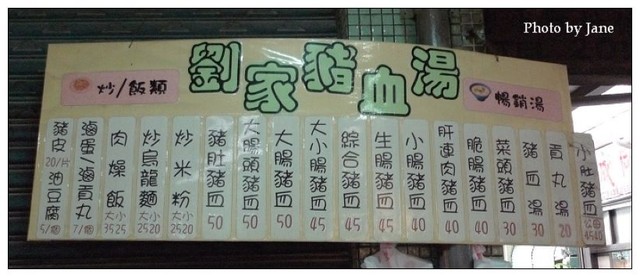 Photo by Jane
劉家豬血湯
炒/飯類
暢銷湯
豬皮 20/片 油豆腐 5/個
滷蛋/滷貢丸 7/個
肉燥飯 大35 小25
炒烏龍麵 大25 小20
炒米粉 大25 小20
豬肚豬血 50
大腸頭豬血 50
大腸豬血 50
大小腸豬血 45
綜合豬血 45
生腸豬血 45
小腸豬血 40
肝連肉豬血 40
脆腸豬血 40
菜頭豬血 30
豬血湯 30
貢丸湯 20
小肚豬血